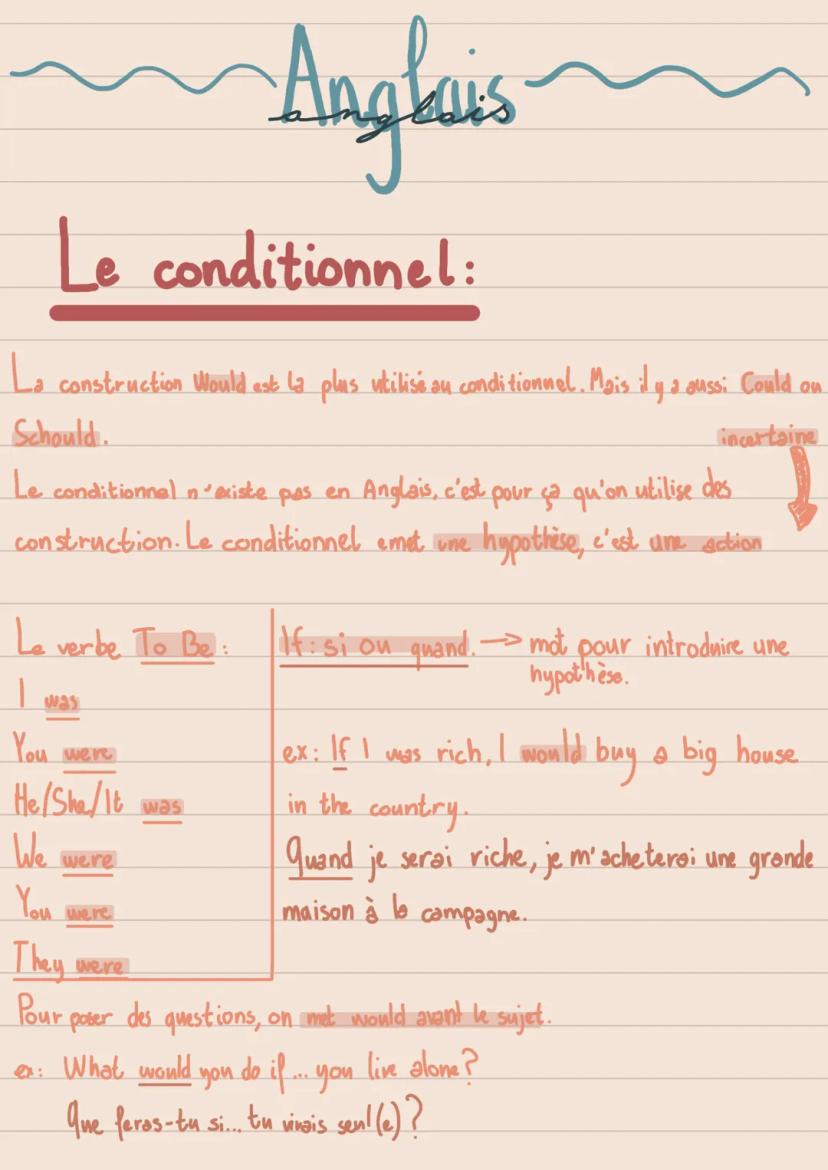 Anglais
anglais
Le conditionnel:
La construction Would est la plus utilisé au conditionnel. Mais il y a aussi Could ou
Schould.
incertaine
Le conditionnel n'existe pas en Anglais, c'est pour ça qu'on utilise des
construction. Le conditionnel emet une hypothèse, c'est une action
Le verbe To Be:
I was
You were
He/She/It was
We were
You were
They were
If: si ou quand. → mot pour introduire une
hypothèse.
ex: If I was rich, I would buy a big house
in the country.
Quand je serai riche, je m'acheterai une grande
maison à la campagne.
Pour poser des questions, on met would avant le sujet.
ex: What would you do if... you live alone?
Que feras-tu si... tu vivais seul(e)?